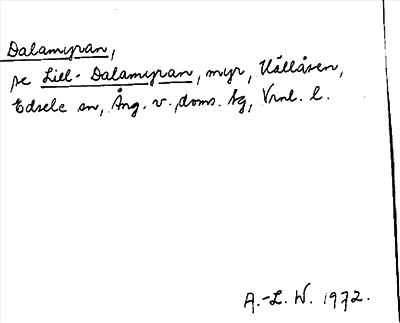 Dalamyran,
se Lill-Dalamyran, myr, Hållåsen,
Edsele sn, Ång. v. doms. tg, Vrnl. l.
A.-L. W. 1972.